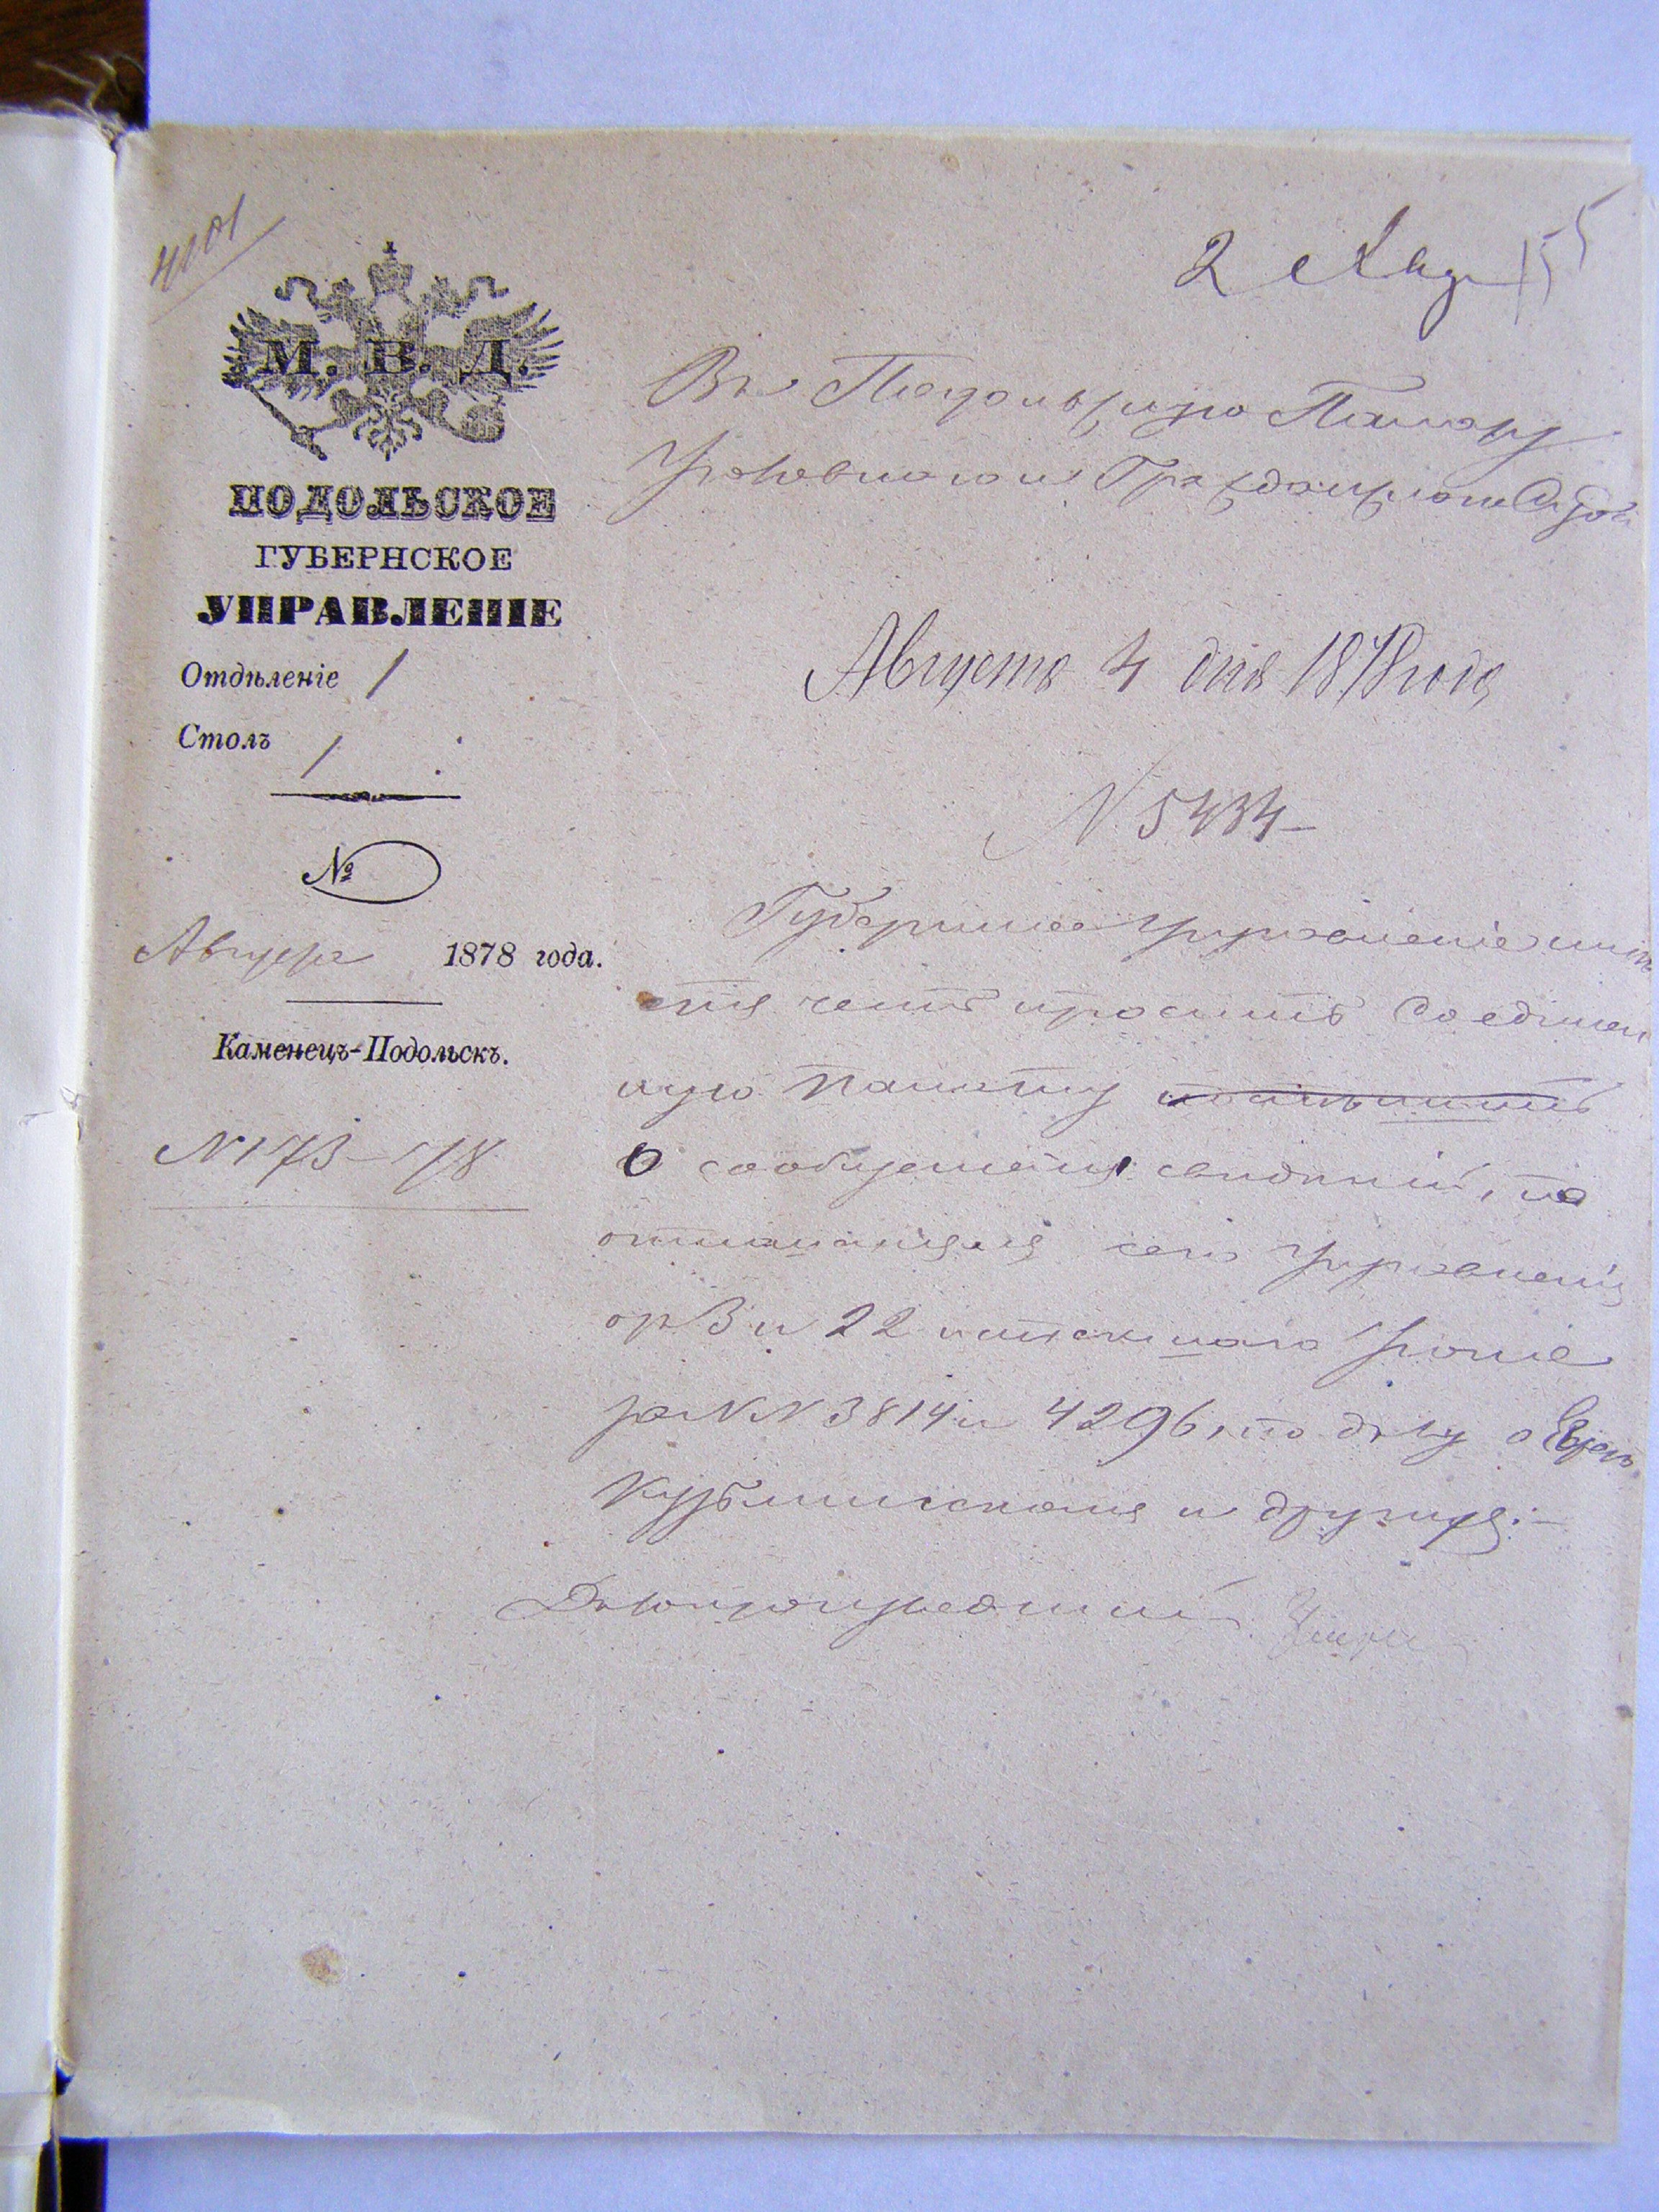 4101
2 155
М. В. Д.
ПОДОЛЬСКОЕ
ГУБЕРНСКОЕ
УПРАВЛЕНІЕ
Отдѣленіе 1
Столъ 1
№
Августа 1878 года.
Каменецъ-Подольскъ.
N 173–78
Въ Подольскую Палату
Уголовнаго и Гражданскаго Суда
Августа 4 дня 1878 года
N 5434
Губернское Управленіе имѣ
етъ честь просить Соединен
ную Палату
о сообщеніи свѣдѣній, по
отношеніямъ сего Управленія
отъ 3 и 22 истекшаго Іюня
за NN 3814 и 4296, по дѣлу о Евреѣ
и другихъ.
Дѣлопроизводитель